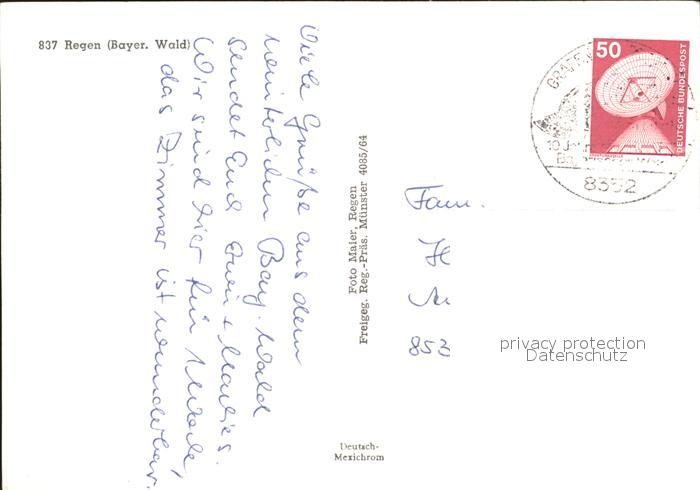 837 Regen (Bayer. Wald)
Viele Grüße aus dem
winterlichen Bay. Wald
sendet Euch Erwin + Marlies.
Wir sind hier für 1 Woche,
das Zimmer ist wunderbar.
Foto Maier, Regen
Freigeg. Reg.-Präs. Münster 4085/64
Deutsch-
Mexichrom
50
DEUTSCHE BUNDESPOST
8352
Fam.
H
M
850
privacy protection
Datenschutz